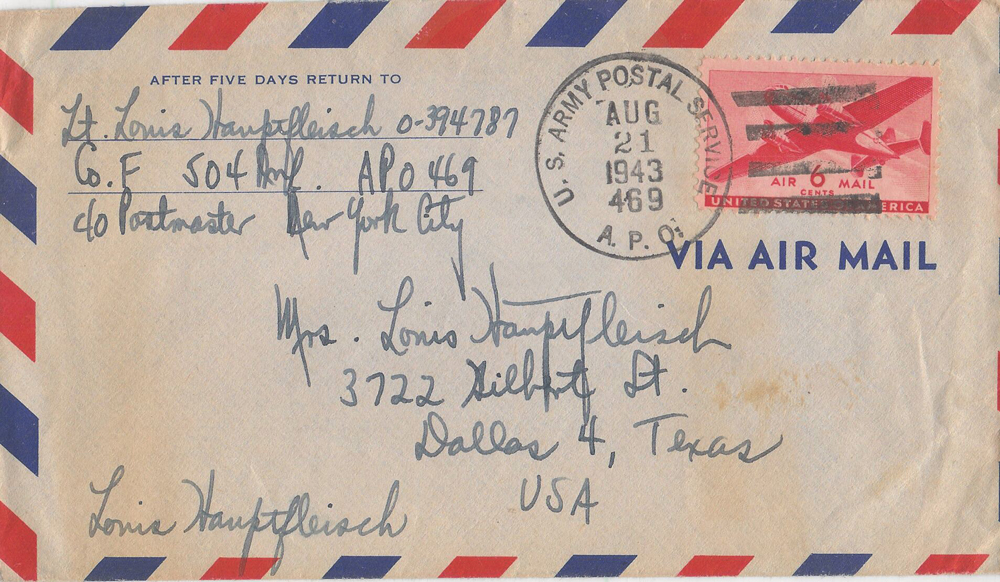 AFTER FIVE DAYS RETURN TO
Lt. Louis Hauptfleisch O-394787
Co. F 504 Inf. APO 469
c/o Postmaster New York City
U. S. ARMY POSTAL SERVICE
AUG
21
1943
469
A. P. O.
AIR 6 MAIL
CENTS
UNITED STATES AMERICA
VIA AIR MAIL
Mrs. Louis Hauptfleisch
3722 Gilbert St.
Dallas 4, Texas
USA
Louis Hauptfleisch